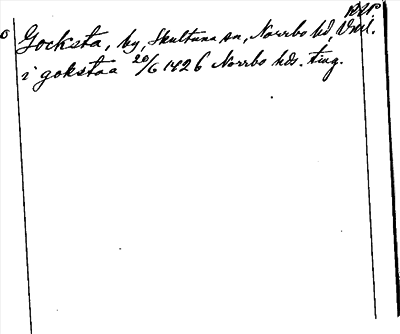 Gocksta, by, Skultuna sn, Norrbo hd, Vml.
i gokstaa 20/6 1426 Norrbo hds. ting.